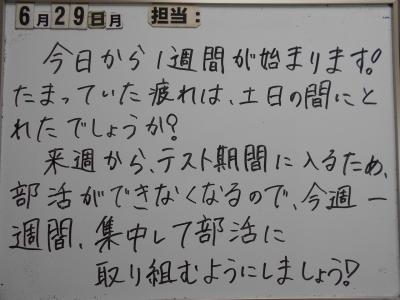 6月29日月 担当:
今日から1週間が始まります!
たまっていた疲れは、土日の間にと
れたでしょうか?
来週から、テスト期間に入るため、
部活ができなくなるので、今週一
週間、集中して部活に
取り組むようにしましょう!